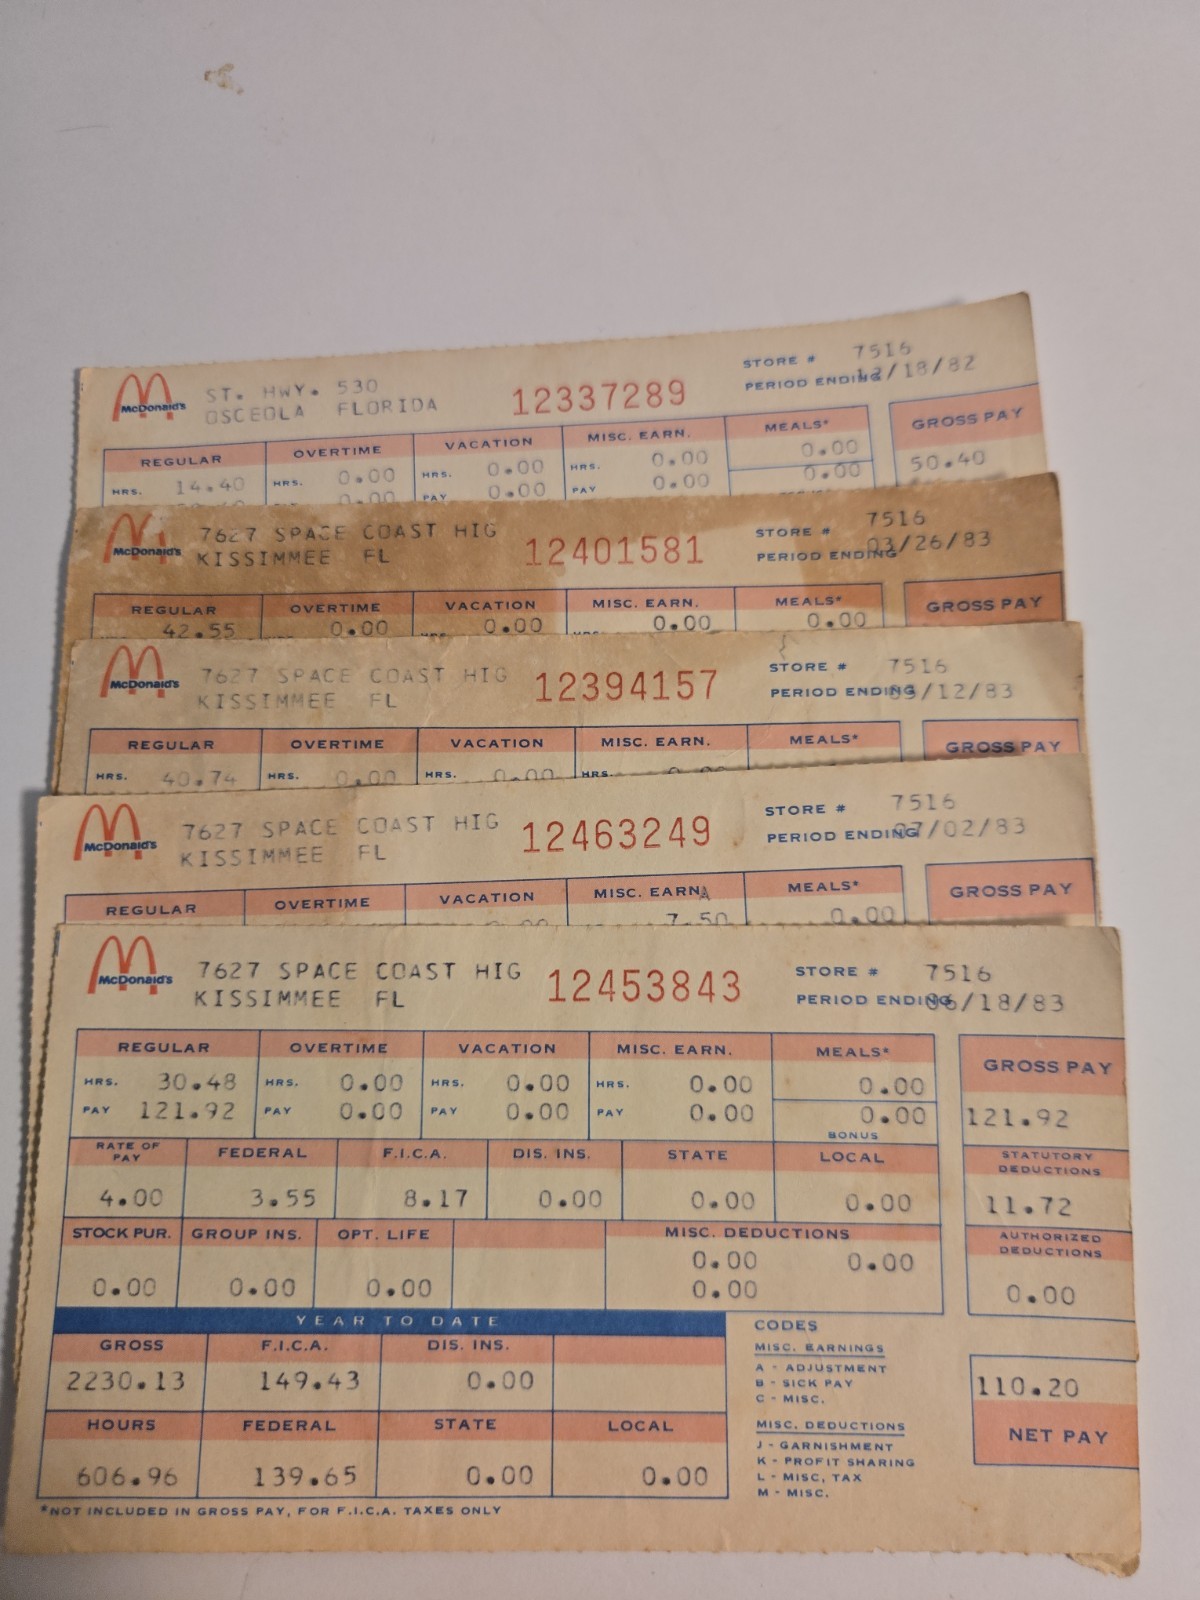 McDonald's
ST. HWY. 530
OSCEOLA FLORIDA
12337289
STORE # 7516
PERIOD ENDING 12/18/82
REGULAR OVERTIME VACATION MISC. EARN. MEALS* GROSS PAY
HRS. 14.40 HRS. 0.00 HRS. 0.00 HRS. 0.00 0.00 50.40
0.00 PAY 0.00 PAY 0.00 0.00
McDonald's
7627 SPACE COAST HIG
KISSIMMEE FL
12401581
STORE # 7516
PERIOD ENDING 03/26/83
REGULAR OVERTIME VACATION MISC. EARN. MEALS* GROSS PAY
42.55 0.00 0.00 0.00 0.00
McDonald's
7627 SPACE COAST HIG
KISSIMMEE FL
12394157
STORE # 7516
PERIOD ENDING /12/83
REGULAR OVERTIME VACATION MISC. EARN. MEALS* GROSS PAY
HRS. 40.74 HRS. 0.00 HRS. 0.00 HRS. 0.00
McDonald's
7627 SPACE COAST HIG
KISSIMMEE FL
12463249
STORE # 7516
PERIOD ENDING 07/02/83
REGULAR OVERTIME VACATION MISC. EARN. A MEALS* GROSS PAY
0.00 7.50 0.00
McDonald's
7627 SPACE COAST HIG
KISSIMMEE FL
12453843
STORE # 7516
PERIOD ENDING 06/18/83
REGULAR OVERTIME VACATION MISC. EARN. MEALS* GROSS PAY
HRS. 30.48 HRS. 0.00 HRS. 0.00 HRS. 0.00 0.00
PAY 121.92 PAY 0.00 PAY 0.00 PAY 0.00 0.00 121.92
BONUS
RATE OF PAY FEDERAL F.I.C.A. DIS. INS. STATE LOCAL STATUTORY DEDUCTIONS
4.00 3.55 8.17 0.00 0.00 0.00 11.72
STOCK PUR. GROUP INS. OPT. LIFE MISC. DEDUCTIONS AUTHORIZED DEDUCTIONS
0.00 0.00
0.00 0.00 0.00 0.00 0.00
YEAR TO DATE
GROSS F.I.C.A. DIS. INS.
2230.13 149.43 0.00
HOURS FEDERAL STATE LOCAL
606.96 139.65 0.00 0.00
CODES
MISC. EARNINGS
A - ADJUSTMENT
B - SICK PAY
C - MISC.
MISC. DEDUCTIONS
J - GARNISHMENT
K - PROFIT SHARING
L - MISC, TAX
M - MISC.
110.20
NET PAY
*NOT INCLUDED IN GROSS PAY, FOR F.I.C.A. TAXES ONLY